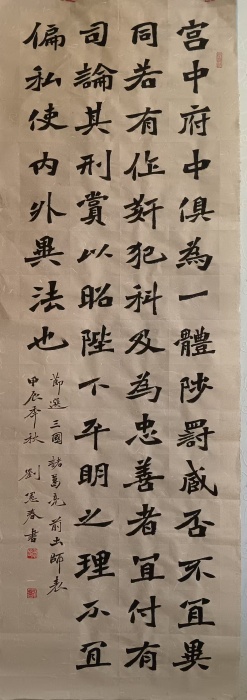 宮中府中俱為一體陟罰臧否不宜異
同若有作奸犯科及為忠善者宜付有
司論其刑賞以昭陛下平明之理不宜
偏私使內外異法也
節選三國諸葛亮前出師表
甲辰年秋 劉春書